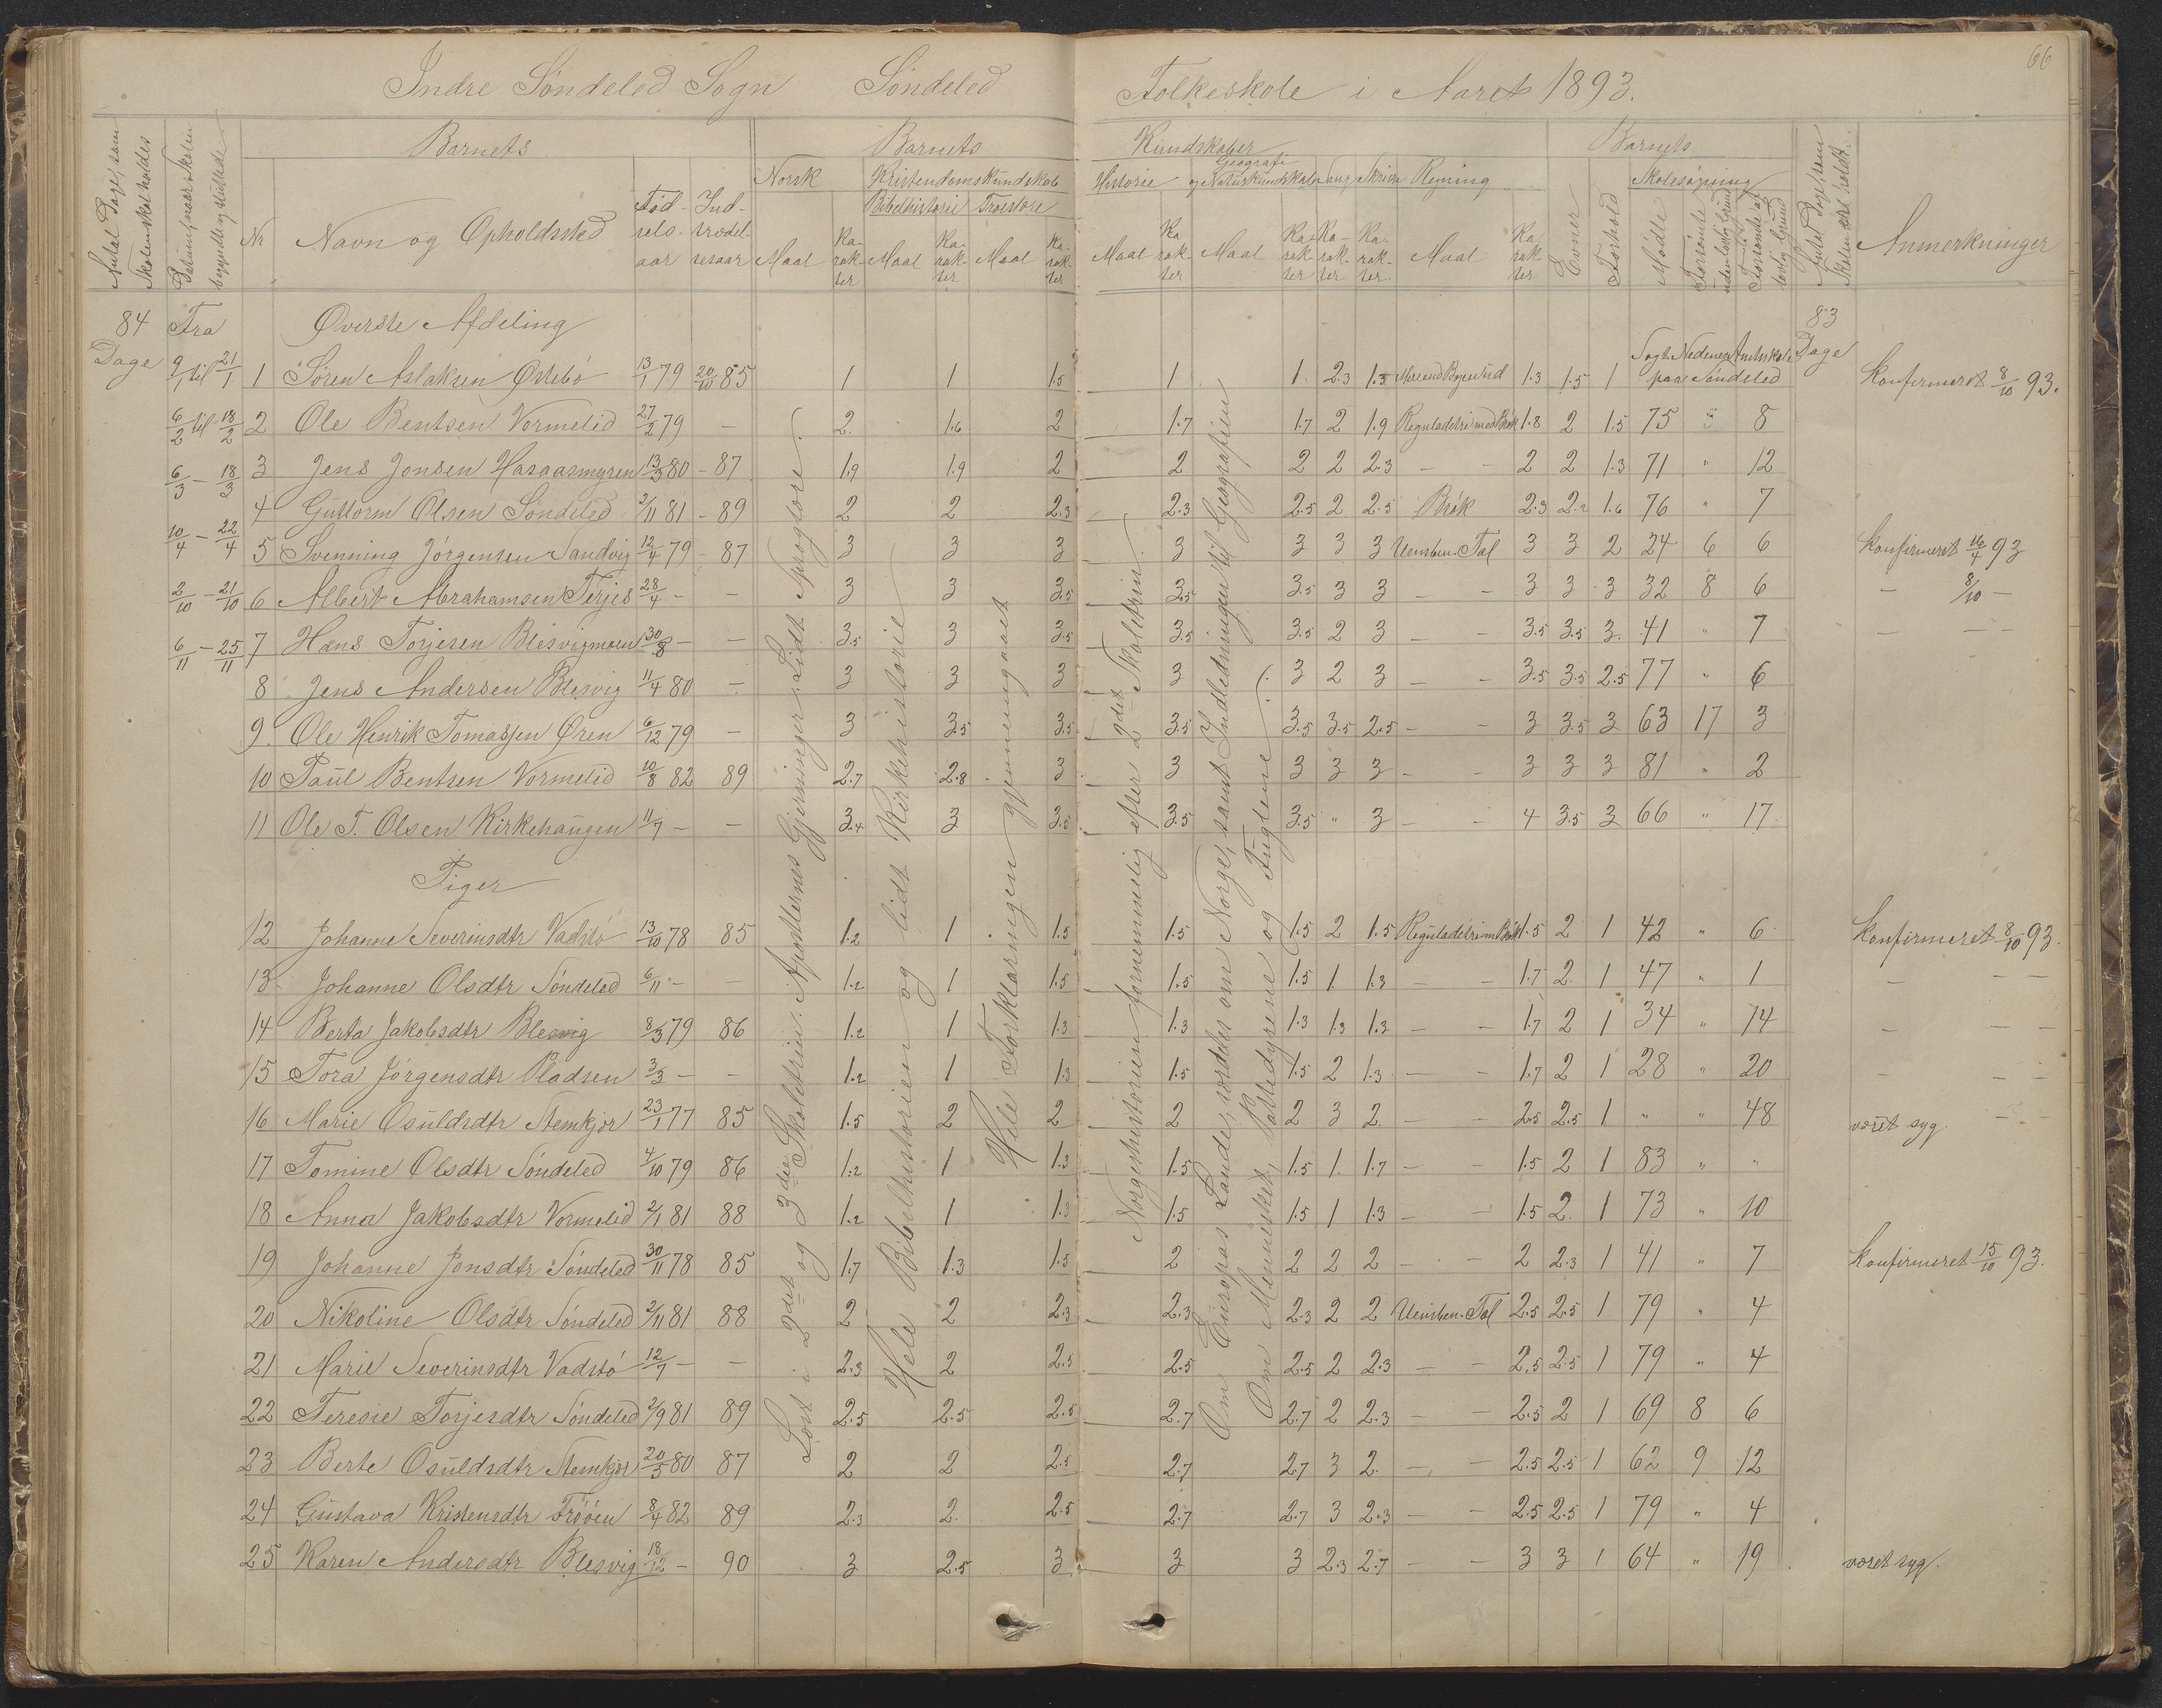 66
Indre Søndeled Sogn Søndeled Folkeskole i Aaret 1893.
Antal Dage, som Skolen skal holdes
Datum, naar Skolen begyndte og sluttede
Barnets
Nr Navn og Opholdssted Fødselsaar Indtrædelsesaar
Barnets Kundskaber
Norsk Kristendomskundskab Historie Geografi og Naturkundskab Sang Skrivn Regning
Bibelhistorie Troeslære
Maal Karakter Maal Karakter Maal Karakter Maal Karakter Maal Karakter Karakter Karakter Maal Karakter
Barnets
Evner Forhold
Skolesøgning
Mødte Forsømte uden lovlig Grund Forsømte af lovlig Grund
Antal Dage, som Skolen holdt
Anmerkninger
84 Dage
Fra
9/1 til 21/1
6/2 til 18/2
6/3 - 18/3
10/4 - 22/4
2/10 - 21/10
6/11 - 25/11
83 Dage
Øverste Afdeling
1 Søren Aslaksen Østebø 13/1 79 20/10 85 1 1 1.5 1 1 2.3 1.3 1.3 1.5 1 Søgt Nedenes Amtskole paa Søndeled Konfirmeret 8/10 93.
2 Ole Bentsen Vormelid 27/2 79 - 2. 1.6 2 1.7 1.7 2 1.9 Reguladetri med Brøk 1.8 2 1.5 75 8
3 Jens Jonsen Hasaasmyren 13/3 80 - 87 1.9 1.9 2 2 2 2 2.3 - - 2 2 1.3 71 " 12
4 Guttorm Olsen Søndeled 2/11 81 - 89 2 2 2.3 2.3 2.5 2 2.5 Brøk 2.3 2.2 1.6 76 " 7
5 Svenning Jørgensen Sandvig 12/4 79 - 87 3 3 3 3 3 3 3 Uensben. Tal 3 3 2 24 6 6 Konfirmeret 16/4 93
6 Albert Abrahamsen Terjes 28/4 - - 3 3 3.5 3.5 3.5 3 3 - - 3 3 3 32 8 6 - 8/10 -
7 Hans Torjesen Blesvigmoen 30/8 - - 3.5 3 3.5 3.5 3.5 2 3 - - 3.5 3.5 3. 41 " 7 - - -
8 Jens Andersen Blesvig 11/4 80 - 3 3 3 3 3 2 3 - - 3.5 3.5 2.5 77 " 6
9. Ole Henrik Tomassen Øren 6/12 79 - 3 3.5 3.5 3.5 3.5 3.5 2.5 - - 3 3.5 3 63 17 3
10 Paul Bentsen Vormelid 10/8 82 89 2.7 2.8 3 3 3 3 3 - - 3 3 3 81 " 2
11 Ole T. Olsen Kirkehaugen 11/7 - - 3.4 3 3.5 3.5 3.5 " 3 - - 4 3.5 3 66 " 17
Piger
12 Johanne Severinsdtr Vadstø 13/10 78 85 1.2 1 1.5 1.5 1.5 2 1.5 Reguladetri m Brøk 1.5 2 1 42 " 6 Konfirmeret 8/10 93.
13 Johanne Olsdtr Søndeled 6/11 - - 1.2 1 1.5 1.5 1.5 1 1.3 - - 1.7 2 1 47 " 1 - - -
14 Berta Jakobsdtr Blesvig 8/3 79 86 1.2 1 1.3 1.3 1.3 1.3 1.3 - - 1.7 2 1 34 " 14 - - -
15 Tora Jørgensdtr Pladsen 3/3 - - 1.2 1 1.3 1.5 1.5 2 1.3 - - 1.7 2 1 28 " 20 - - -
16 Marie Osuldsdtr Stemkjør 23/1 77 85 1.5 2 2 2 2 3 2. - - 2.5 2.5 1 " " 48 været syg. - -
17 Tomine Olsdtr Søndeled 4/10 79 86 1.2 1 1.3 1.5 1.5 1 1.7 - - 1.5 2 1 83 " "
18 Anna Jakobsdtr Vormelid 2/1 81 88 1.2 1 1.3 1.5 1.5 1 1.3 - - 1.5 2. 1 73 " 10
19 Johanne Jonsdtr Søndeled 30/11 78 85 1.7 1.3 1.5 2 2 2 2 - - 2 2.3 1 41 " 7 Konfirmeret 15/10 93.
20 Nikoline Olsdtr Søndeled 2/11 81 88 2 2 2.3 2.3 2.3 2 2 Uensben. Tal 2.5 2.5 1 79 " 4
21 Marie Severinsdtr Vadstø 12/7 - - 2.3 2 2.5 2.5 2.5 2 2.3 - - 2.5 2.5 1 79 " 4
22 Teresie Torjesdtr Søndeled 2/9 81 89 2.5 2.5 2.5 2.7 2.7 2 2.3 - - 2.5 2 1 69 8 6
23 Berte Osuldsdtr Stemkjør 20/5 80 87 2 2 2.5 2.7 2.7 3 2. - - 2.5 2.5 1 62 9 12
24 Gustava Kristensdtr Frøøen 8/4 82 89 2.3 2. 2.5 2.7 2.7 3 2.3 - - 2.5 2.5 1 79 " 4
25 Karen Andersdtr Blesvig 18/12 - 90 3 2.5 3 3 3 2.3 2.7 - - 3 3 1 64 " 19 været syg.
Læst i 2det og 3die Skoletrin: Apostlernes Gjerninger. Lidt Sproglære.
Hele Bibelhistorien og lidt Kirkehistorie
Hele Forklaringen gjennemgaaet
Norgeshistorien fornemmelig efter 2det Skoletrin.
Om Europas Lande, særdeles om Norge, samt Indledningen til Geografien
Om Mennesket, Pattedyrene og Fuglene.